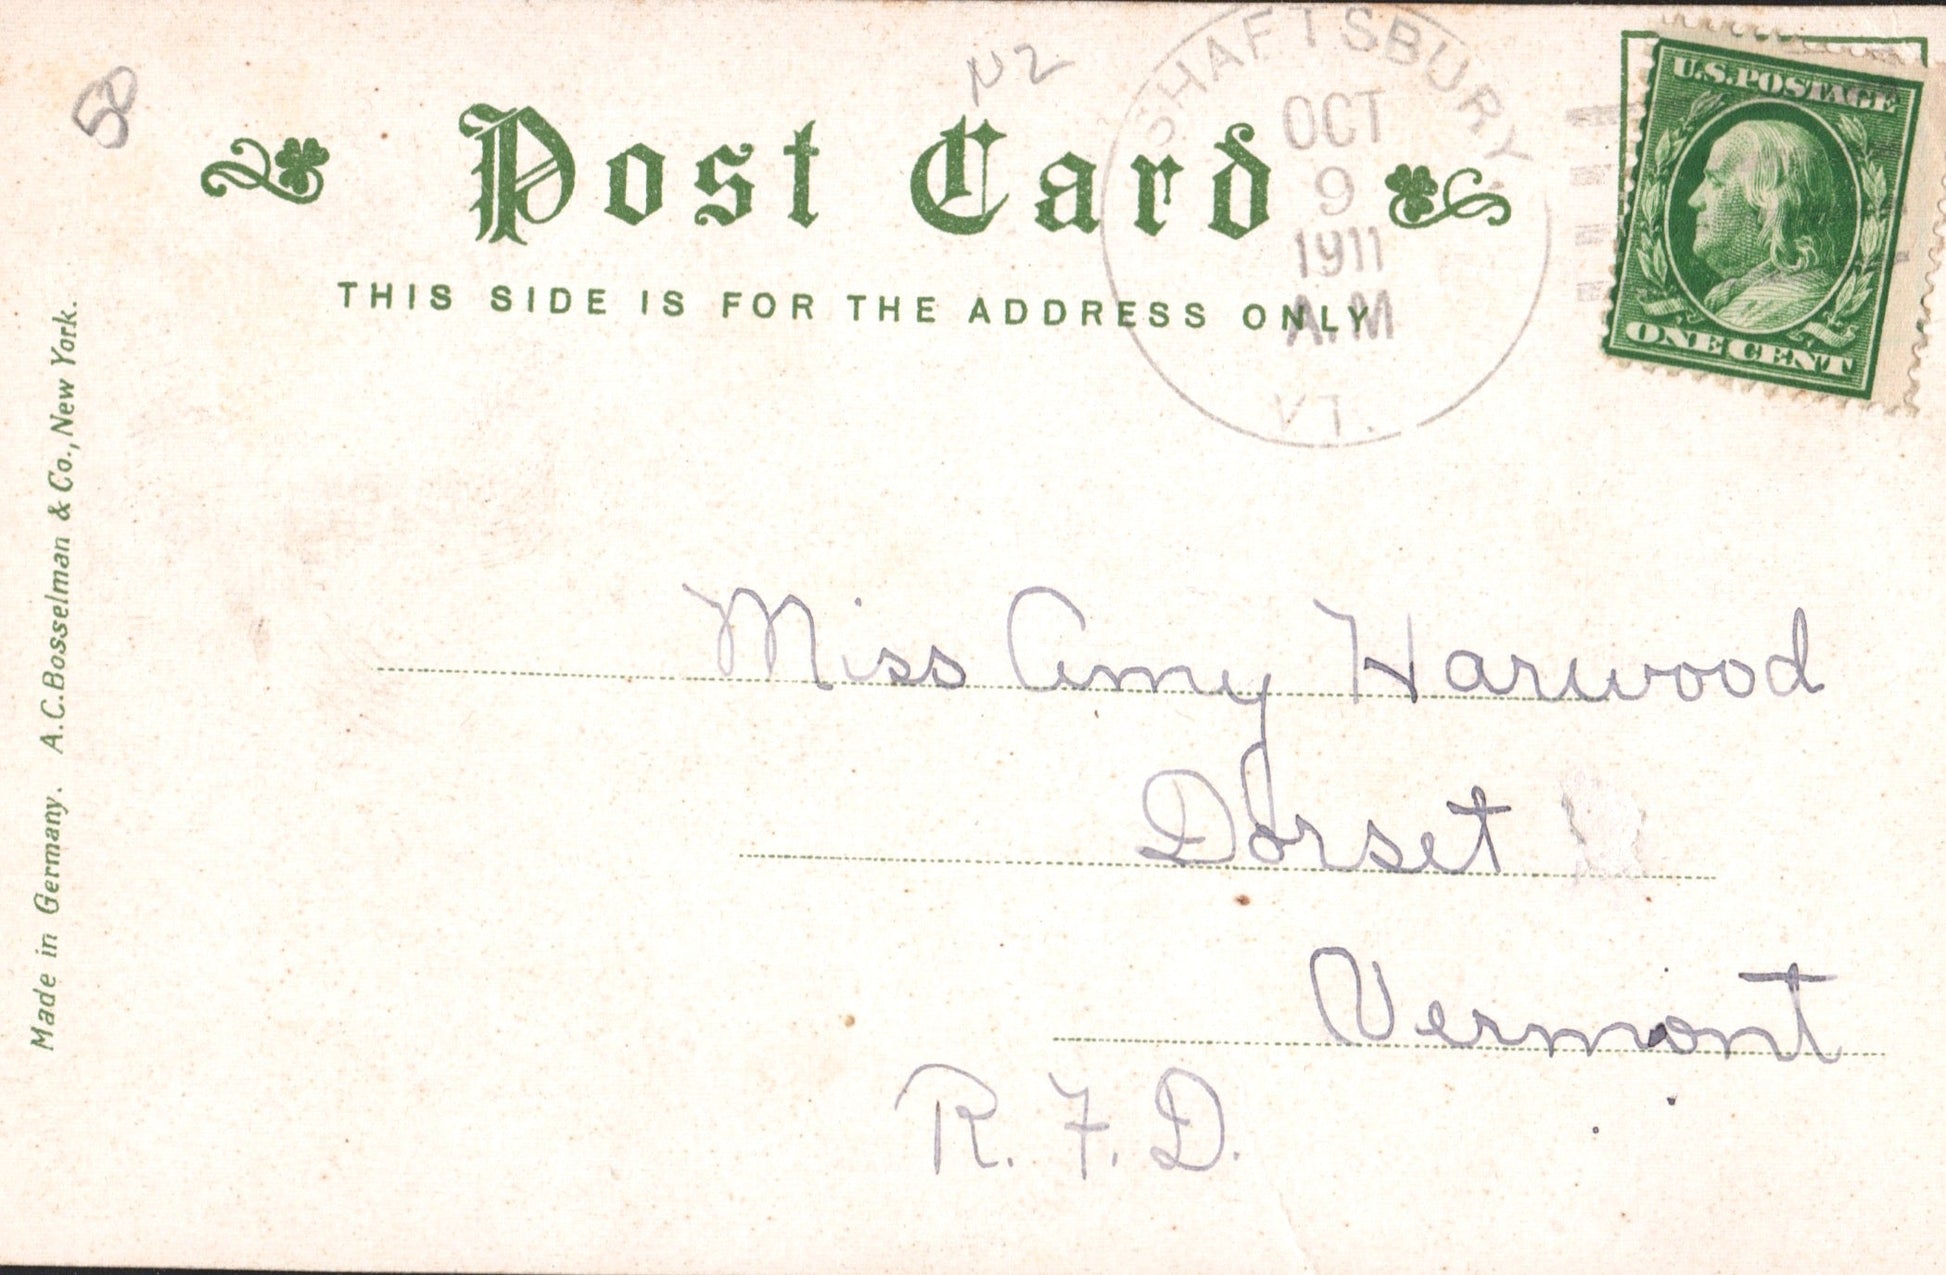 50
N2
SHAFTSBURY
OCT
9
1911
A.M
VT.
U.S.POSTAGE
ONE CENT
Post Card
THIS SIDE IS FOR THE ADDRESS ONLY
Miss Amy Harwood
Dorset
Vermont
R.F.D.
Made in Germany. A.C.Bosselman & Co., New York.